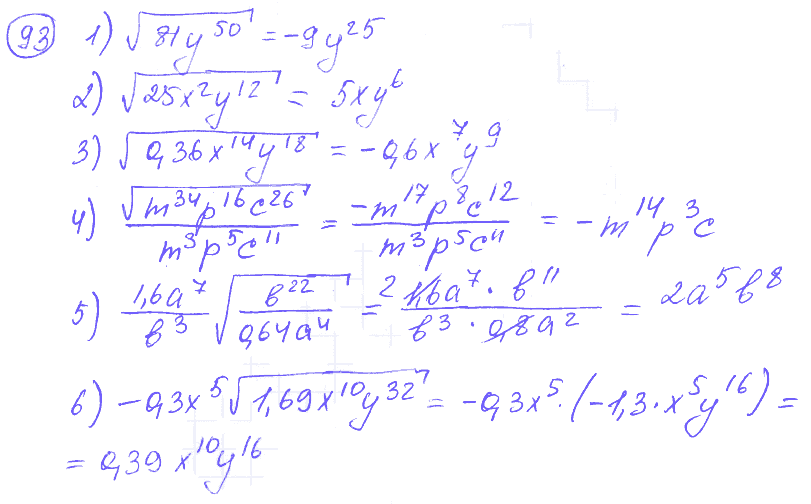 93 1) √(81y^50) = -9y^25
2) √(25x^2y^12) = 5xy^6
3) √(0,36x^14y^18) = -0,6x^7y^9
4) √(m^34p^16c^26)/(m^3p^5c^11) = (-m^17p^8c^12)/(m^3p^5c^11) = -m^14p^3c
5) (1,6a^7)/(b^3) √((b^22)/(0,64a^4)) = (2 1,6a^7 · b^11)/(b^3 · 0,8a^2) = 2a^5b^8
6) -0,3x^5√(1,69x^10y^32) = -0,3x^5·(-1,3·x^5y^16) =
= 0,39x^10y^16